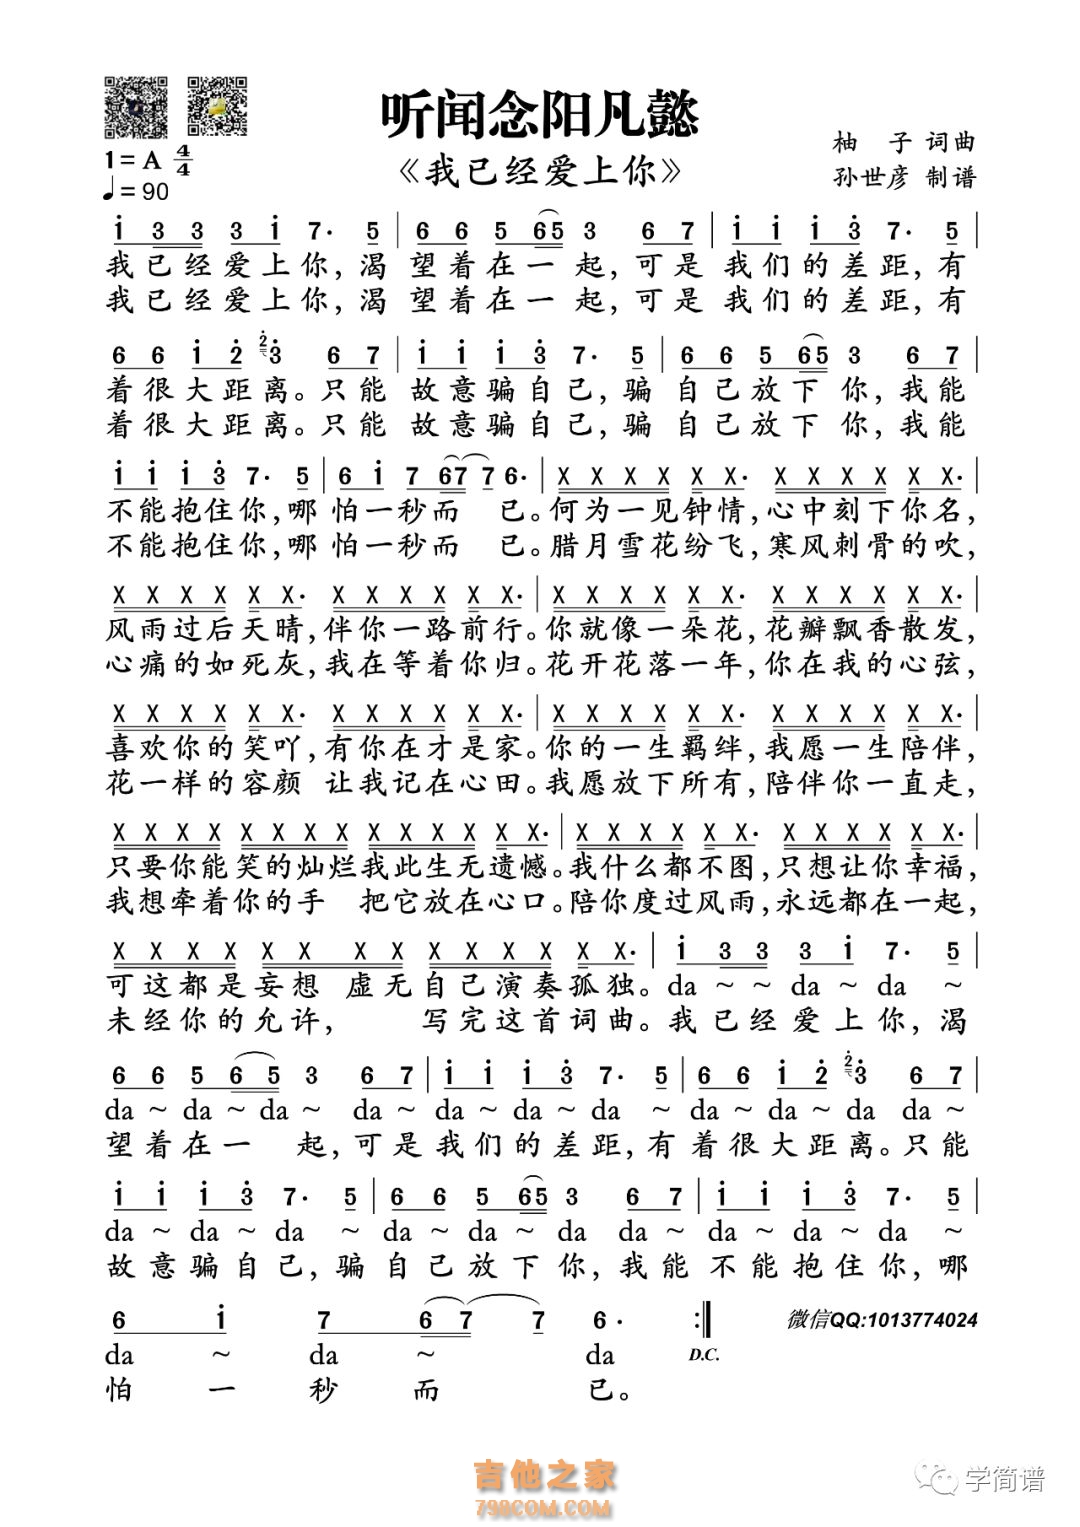 听闻念阳凡懿
《我已经爱上你》
柚 子 词曲
孙世彦 制谱
1=A 4/4
♩=90
i 3 3 3 i 7· 5 | 6 6 5 6 5 3 6 7 | i i i 3 7· 5 |
我已经爱上你,渴 望着在一起,可是 我们的差距,有
我已经爱上你,渴 望着在一起,可是 我们的差距,有
6 6 i 2 2 3 6 7 | i i i 3 7· 5 | 6 6 5 6 5 3 6 7
着很大距离。只能 故意骗自己,骗 自己放下你,我能
着很大距离。只能 故意骗自己,骗 自己放下你,我能
i i i 3 7· 5 | 6 i 7 6 7 7 6· | X X X X X X· X X X X X X· |
不能抱住你,哪 怕一秒而 已。何为一见钟情,心中刻下你名,
不能抱住你,哪 怕一秒而 已。腊月雪花纷飞,寒风刺骨的吹,
X X X X X X· X X X X X X· | X X X X X X· X X X X X X· |
风雨过后天晴,伴你一路前行。你就像一朵花,花瓣飘香散发,
心痛的如死灰,我在等着你归。花开花落一年,你在我的心弦,
X X X X X X· X X X X X X· | X X X X X X· X X X X X X· |
喜欢你的笑吖,有你在才是家。你的一生羁绊,我愿一生陪伴,
花一样的容颜 让我记在心田。我愿放下所有,陪伴你一直走,
X X X X X X X X X X X X X X· | X X X X X X· X X X X X X· |
只要你能笑的灿烂我此生无遗憾。我什么都不图,只想让你幸福,
我想牵着你的手 把它放在心口。陪你度过风雨,永远都在一起,
X X X X X X X X X X X X X X· | i 3 3 3 i 7· 5 |
可这都是妄想 虚无自己演奏孤独。da ~ ~ da ~ da ~
未经你的允许, 写完这首词曲。我已经爱上你,渴
6 6 5 6 5 3 6 7 | i i i 3 7· 5 | 6 6 i 2 2 3 6 7 |
da ~ da ~ da ~ da ~ da ~ da ~ da ~ da ~ da ~ da da ~
望着在一 起,可是我们的差距,有着很大距离。只能
i i i 3 7· 5 | 6 6 5 6 5 3 6 7 | i i i 3 7· 5 |
da ~ da ~ da ~ da ~ da ~ da da ~ da ~ da ~ da ~
故意骗自己,骗自己放下你,我能不能抱住你,哪
6 i 7 6 7 7 6· :‖
da ~ da ~ da D.C.
怕一秒而 已。
微信QQ:1013774024
吉他之家
798COM.COM
学简谱